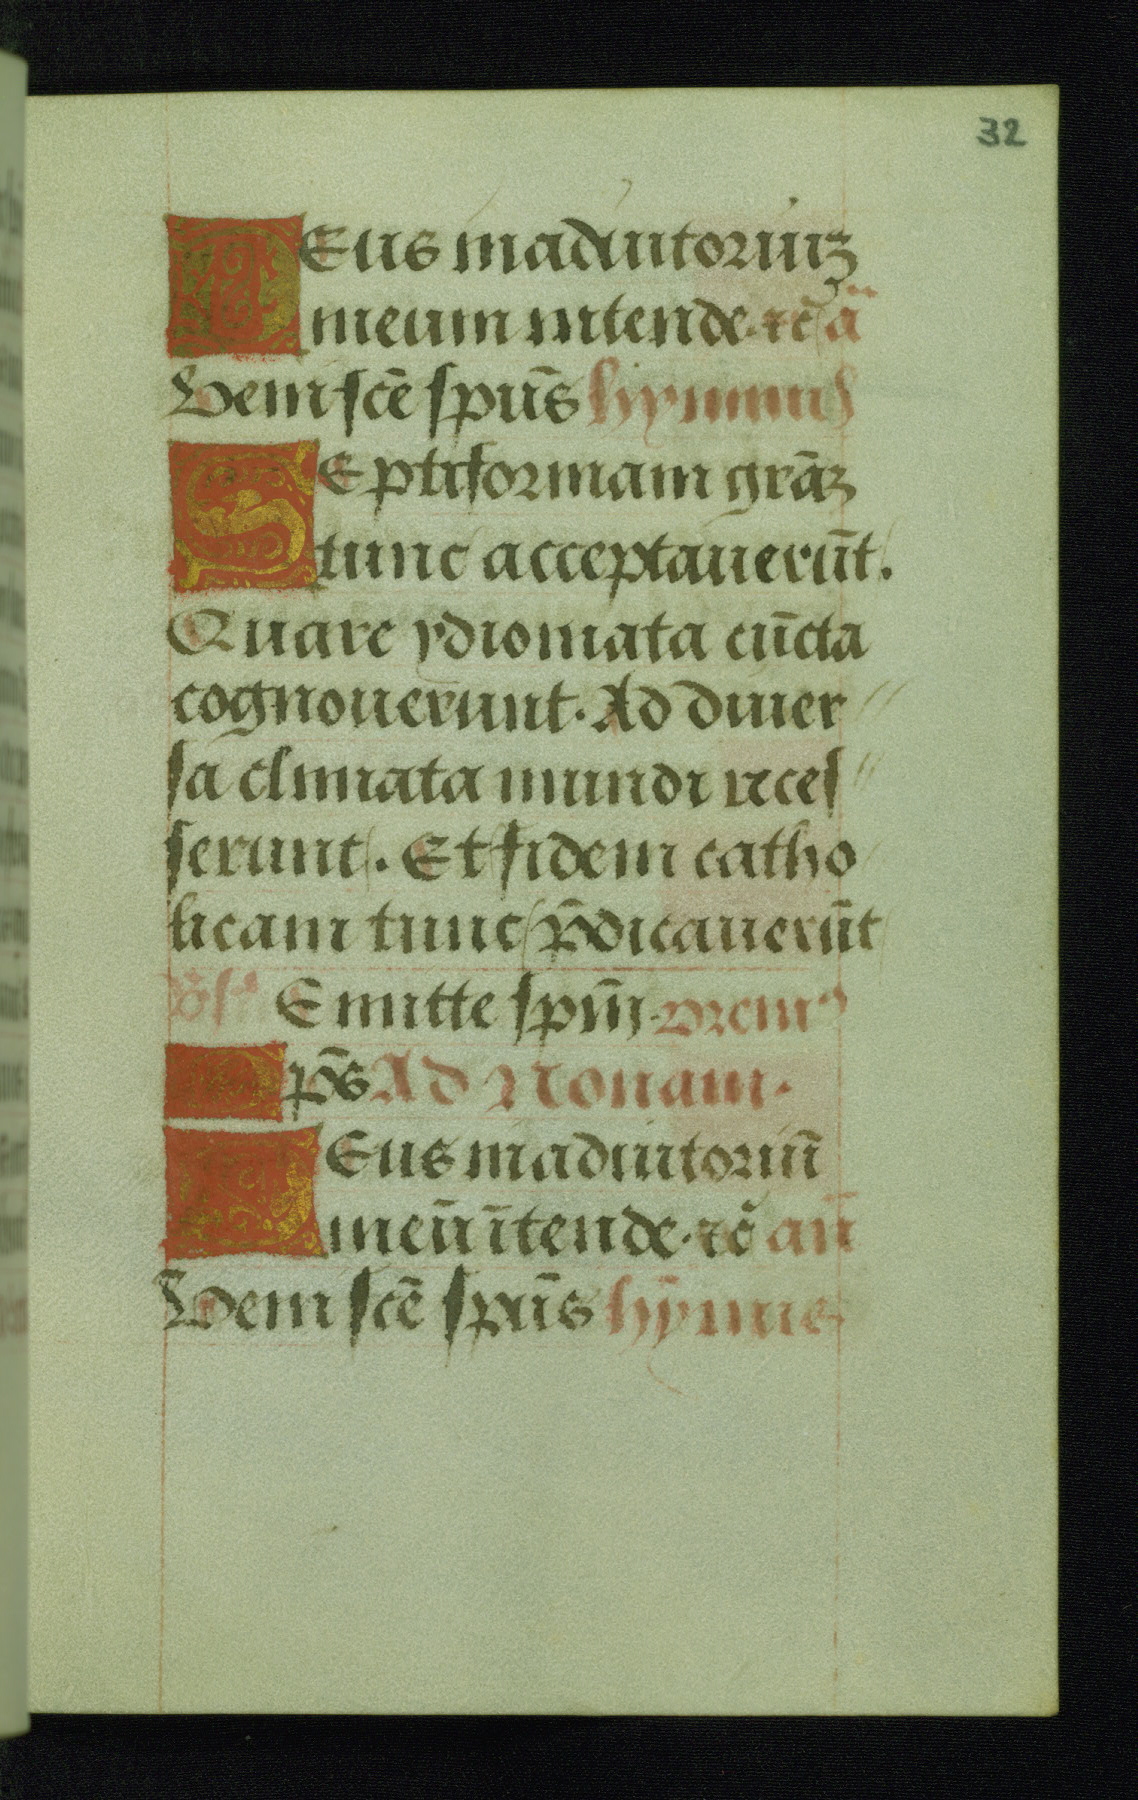 32
DEus in adiutoriuʒ
meum intende ⁊c̄ ā
Veni sc̄e spūs hymnus
SEptiformam grāʒ
tunc acceptauerūt.
Quare ydiomata cūcta
cognouerunt. Ad diuer
sa climata mundi reces
serunt. Et fidem catho
licam tunc p̄dicauerūt
Emitte spm̄ orem⁹
Op̄s Ad Nonam.
DEus in adiutoriū
meū ītende. ⁊c̄ an̄
Veni sc̄e spūs hȳnne.